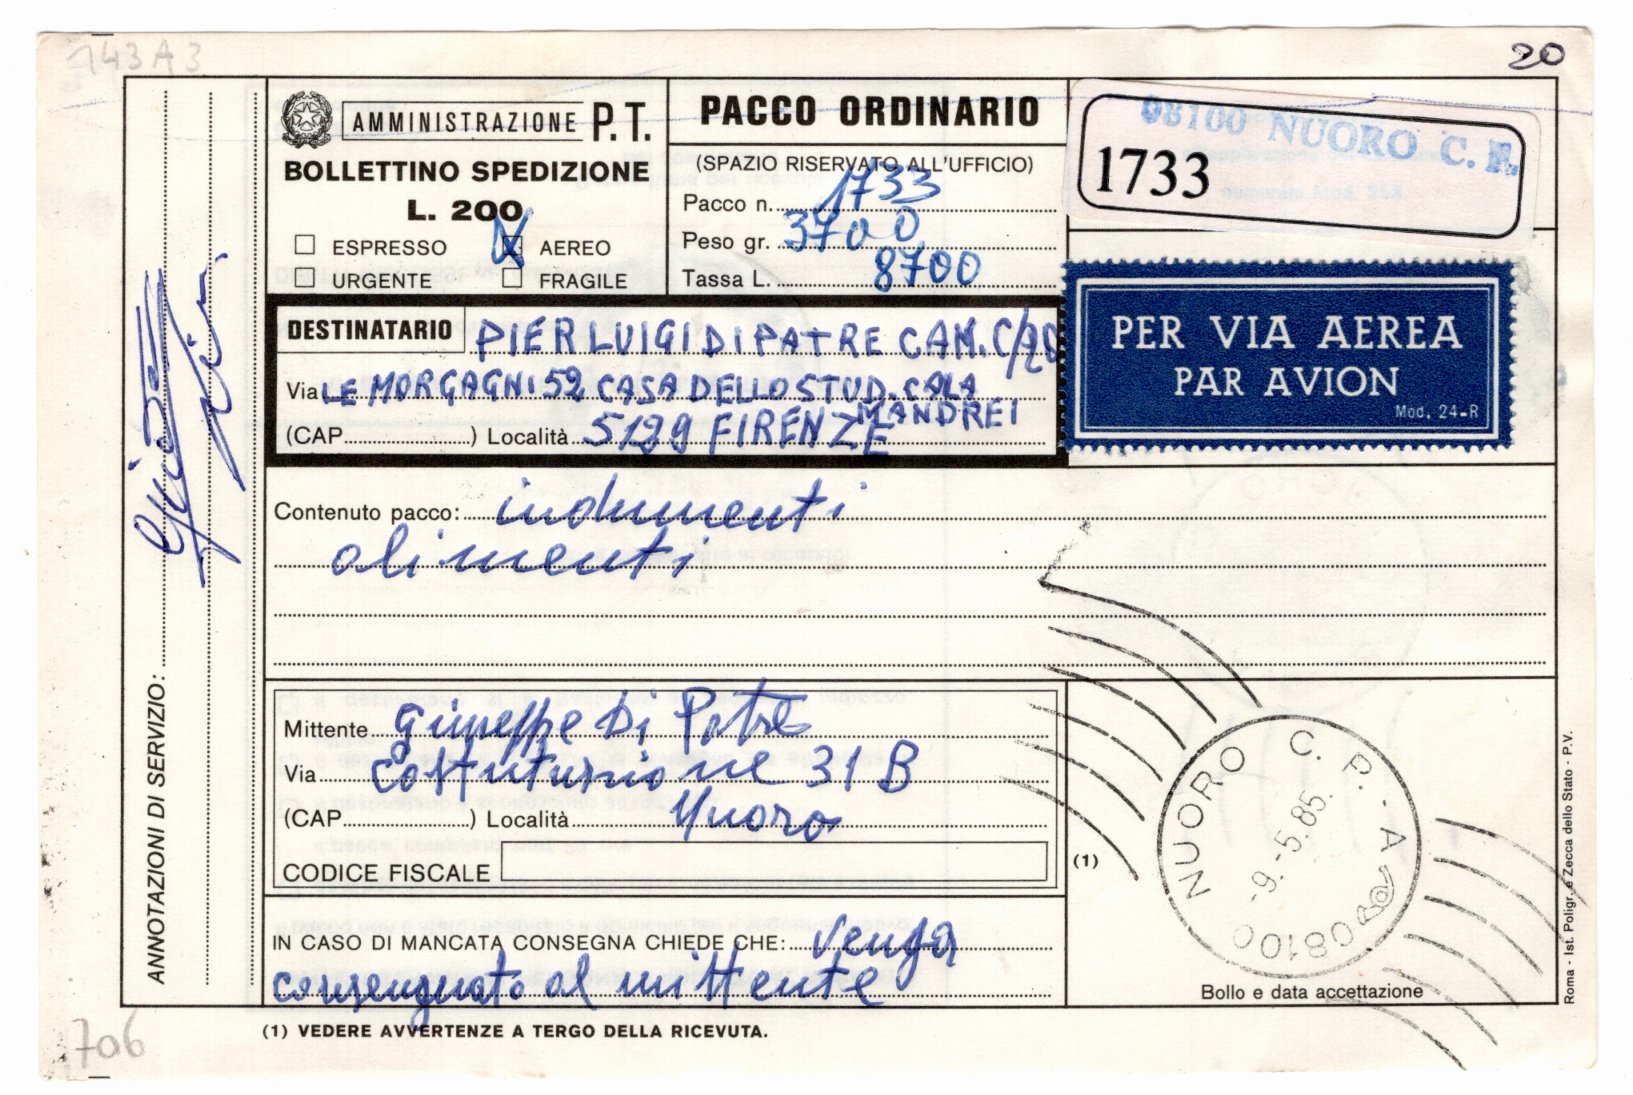 143A3
20
AMMINISTRAZIONE P.T.
BOLLETTINO SPEDIZIONE
L. 200
ESPRESSO
AEREO
URGENTE
FRAGILE
PACCO ORDINARIO
(SPAZIO RISERVATO ALL'UFFICIO)
Pacco n. 1733
Peso gr. 3700
Tassa L. 8700
08100 NUORO C. P.
1733
PER VIA AEREA
PAR AVION
Mod. 24-R
DESTINATARIO PIERLUIGI DI PATRE CAM. C/20
Via LE MORGAGNI 52 CASA DELLO STUD. CALA
MANDREI
(CAP ) Località 5129 FIRENZE
Contenuto pacco: indumenti
alimenti
ANNOTAZIONI DI SERVIZIO:
Mittente Giuseppe Di Patre
Via Costituzione 31 B
(CAP ) Località Nuoro
CODICE FISCALE
(1)
IN CASO DI MANCATA CONSEGNA CHIEDE CHE: venga
consengnato al mittente
NUORO C. P. - A
-9.-5.85.
08100
Bollo e data accettazione
Roma - Ist. Poligr. e Zecca dello Stato - P.V.
(1) VEDERE AVVERTENZE A TERGO DELLA RICEVUTA.
706